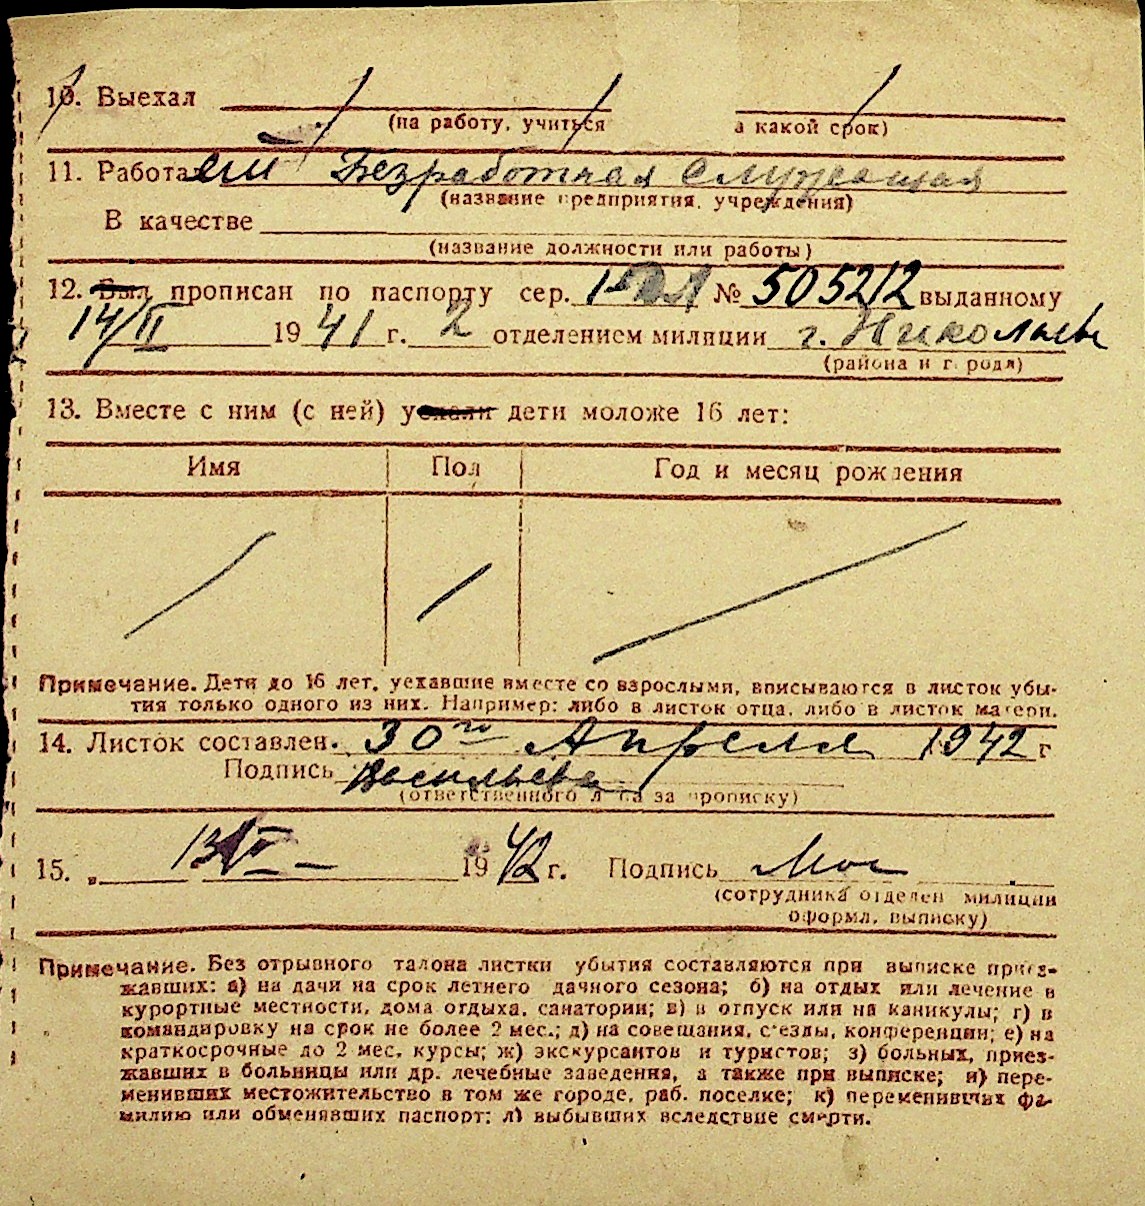 10. Выехал
(на работу, учиться а какой срок)
11. Работа Безработная служащая
(название предприятия, учреждения)
В качестве
(название должности или работы)
12. Был прописан по паспорту сер. № 505212 выданному
14/II 1941 г. 2 отделением милиции г. Николаев
(района и г. рода)
13. Вместе с ним (с ней) уехали дети моложе 16 лет:
Имя Пол Год и месяц рождения
Примечание. Дети до 16 лет, уехавшие вместе со взрослыми, вписываются в листок убы-
тия только одного из них. Например: либо в листок отца, либо в листок матери.
14. Листок составлен. 30го Апреля 1942 г
Подпись Васильева
(ответственного лица за прописку)
15. „ 1942 г. Подпись
(сотрудника отделен милиции
оформл. выписку)
Примечание. Без отрывного талона листки убытия составляются при выписке приез-
жавших: а) на дачи на срок летнего дачного сезона; б) на отдых или лечение в
курортные местности, дома отдыха, санатории; в) в отпуск или на каникулы; г) в
командировку на срок не более 2 мес.; д) на совещания, с'езды, конференции; е) на
краткосрочные до 2 мес. курсы; ж) экскурсантов и туристов; з) больных, приез-
жавших в больницы или др. лечебные заведения, а также при выписке; и) пере-
менивших местожительство в том же городе, раб. поселке; к) переменивших фа-
милию или обменявших паспорт; л) выбывших вследствие смерти.